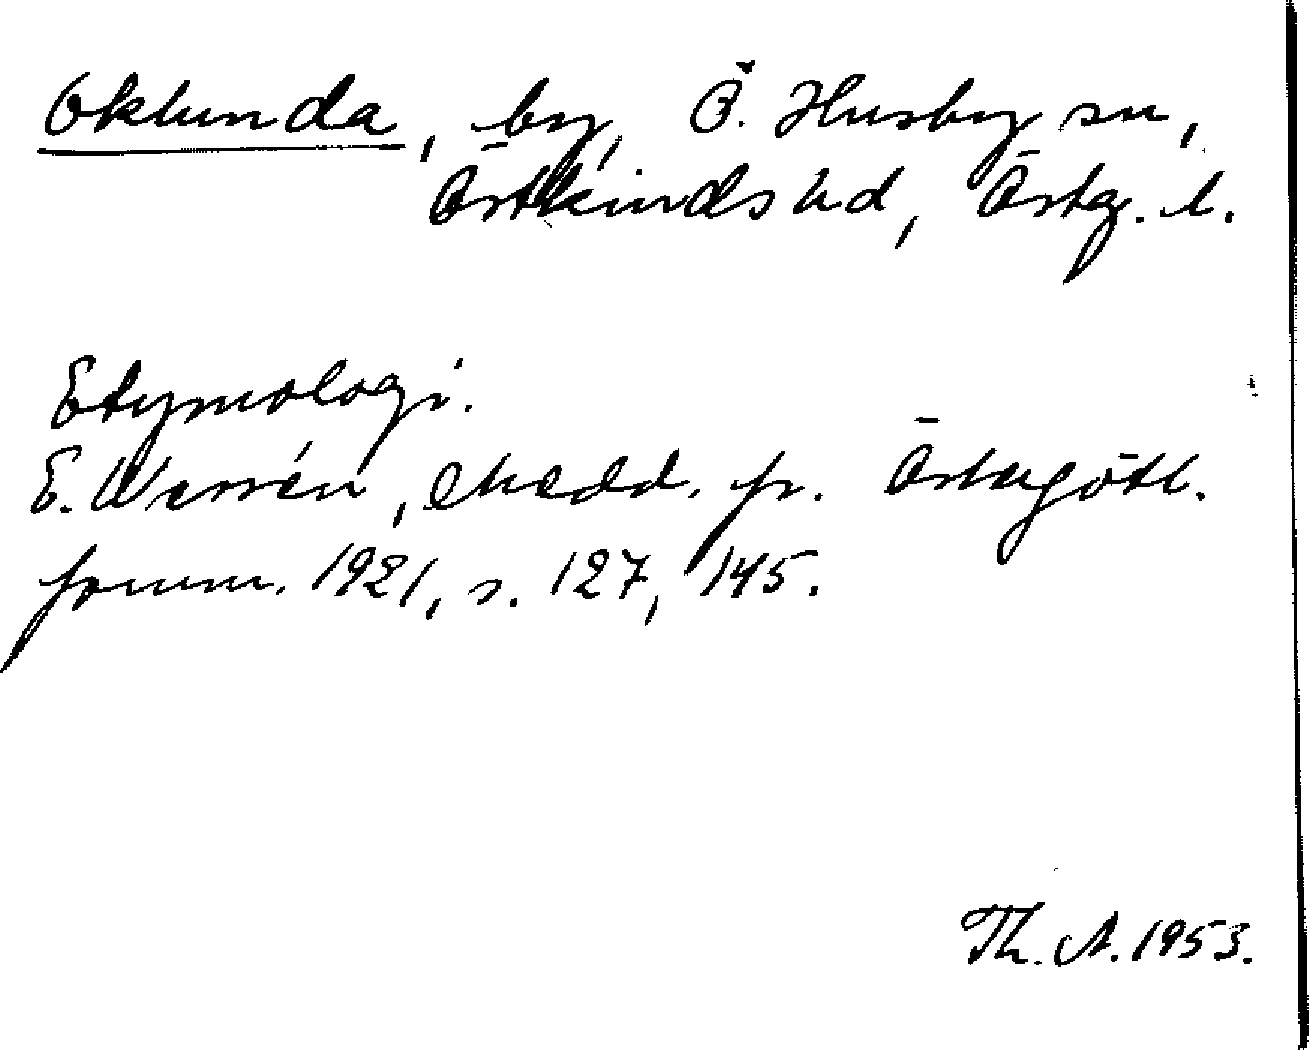 Oklunda, by, Ö. Husby sn,
Östkinds hd, Östg. l.
Etymologi.
E. Wessén, Medd. fr. Östergötl.
fornm. 1921, s. 127, 145.
Th. A. 1953.